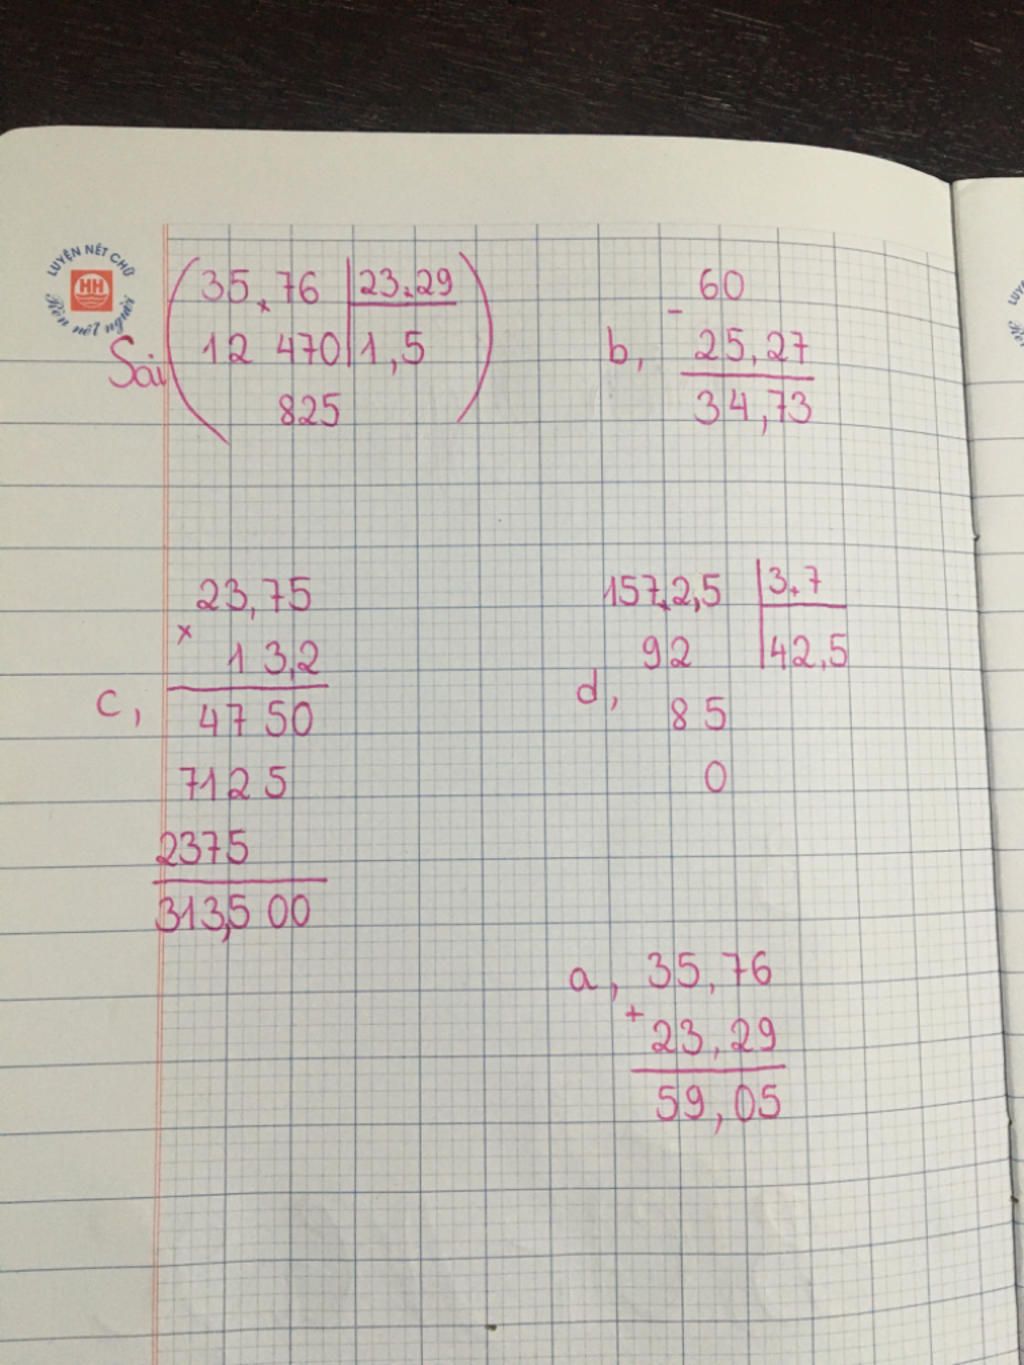 LUYỆN NÉT CHỮ
HH
Rèn nết người
Sai
35,76 23,29
12 470 1,5
825
b,
60
-
25,27
34,73
c,
23,75
×
13,2
4750
7125
2375
313,500
d,
157,2,5 3,7
92 42,5
85
0
a, 35,76
+
23,29
59,05